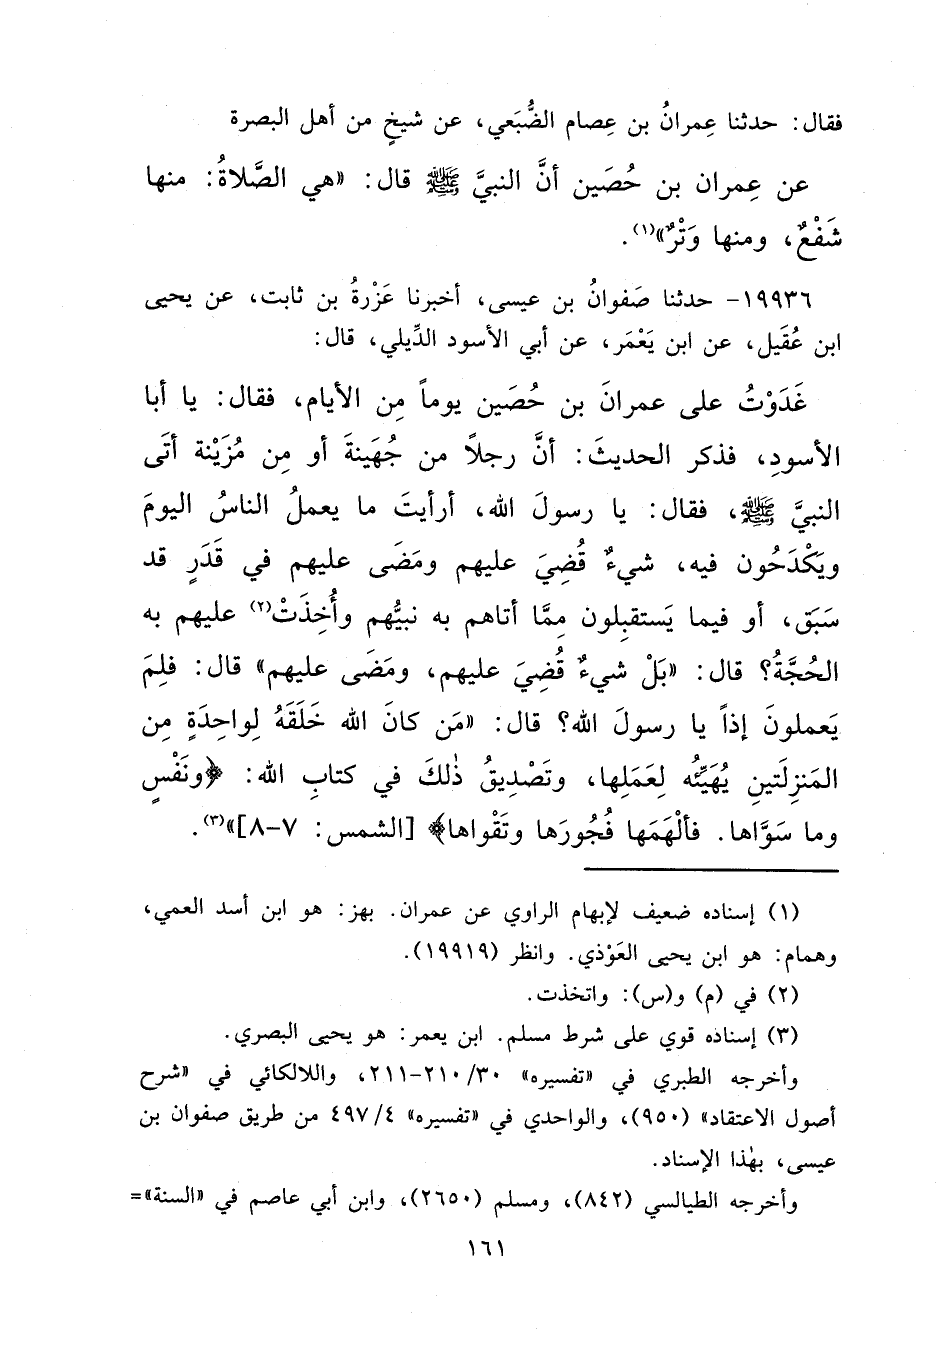 فقال: حدثنا عِمرانُ بن عِصام الضُّبَعي، عن شيخٍ من أهل البصرة
عن عِمران بن حُصَين أنَّ النبيَّ ﷺ قال: «هي الصَّلاةُ: منها
شَفْعٌ، ومنها وَتْرٌ»(١).
١٩٩٣٦- حدثنا صَفوانُ بن عيسى، أخبرنا عَزْرةُ بن ثابت، عن يحيى
ابن عُقَيل، عن ابن يَعْمَر، عن أبي الأسود الدِّيلي، قال:
غَدَوْتُ على عمرانَ بن حُصَين يوماً مِن الأيام، فقال: يا أبا
الأسودِ، فذكر الحديثَ: أنَّ رجلاً من جُهَينةَ أو مِن مُزَيْنة أتَى
النبيَّ ﷺ، فقال: يا رسولَ الله، أرأيتَ ما يعملُ الناسُ اليومَ
ويَكْدَحُون فيه، شيءٌ قُضِيَ عليهم ومَضَى عليهم في قَدَرٍ قد
سَبَق، أو فيما يَستقبِلون مِمَّا أتاهم به نبيُّهم وأُخِذَتْ(٢) عليهم به
الحُجَّةُ؟ قال: «بَلْ شيءٌ قُضِيَ عليهم، ومَضَى عليهم» قال: فلِمَ
يَعملونَ إذاً يا رسولَ الله؟ قال: «مَن كانَ الله خَلَقَهُ لِواحِدَةٍ مِن
المَنزِلَتينِ يُهَيِّئُه لِعَمَلِها، وتَصْدِيقُ ذٰلكَ في كتابِ الله: ﴿ونَفْسٍ
وما سَوَّاها. فألْهَمَها فُجُورَها وتَقْواها﴾ [الشمس: ٧-٨]»(٣).
(١) إسناده ضعيف لإبهام الراوي عن عمران. بهز: هو ابن أسد العمي،
وهمام: هو ابن يحيى العَوْذي. وانظر (١٩٩١٩).
(٢) في (م) و(س): واتخذت.
(٣) إسناده قوي على شرط مسلم. ابن يعمر: هو يحيى البصري.
وأخرجه الطبري في «تفسيره» ٣٠/ ٢١٠-٢١١، واللالكائي في «شرح
أصول الاعتقاد» (٩٥٠)، والواحدي في «تفسيره» ٤/ ٤٩٧ من طريق صفوان بن
عيسى، بهٰذا الإسناد.
وأخرجه الطيالسي (٨٤٢)، ومسلم (٢٦٥٠)، وابن أبي عاصم في «السنة»=
١٦١